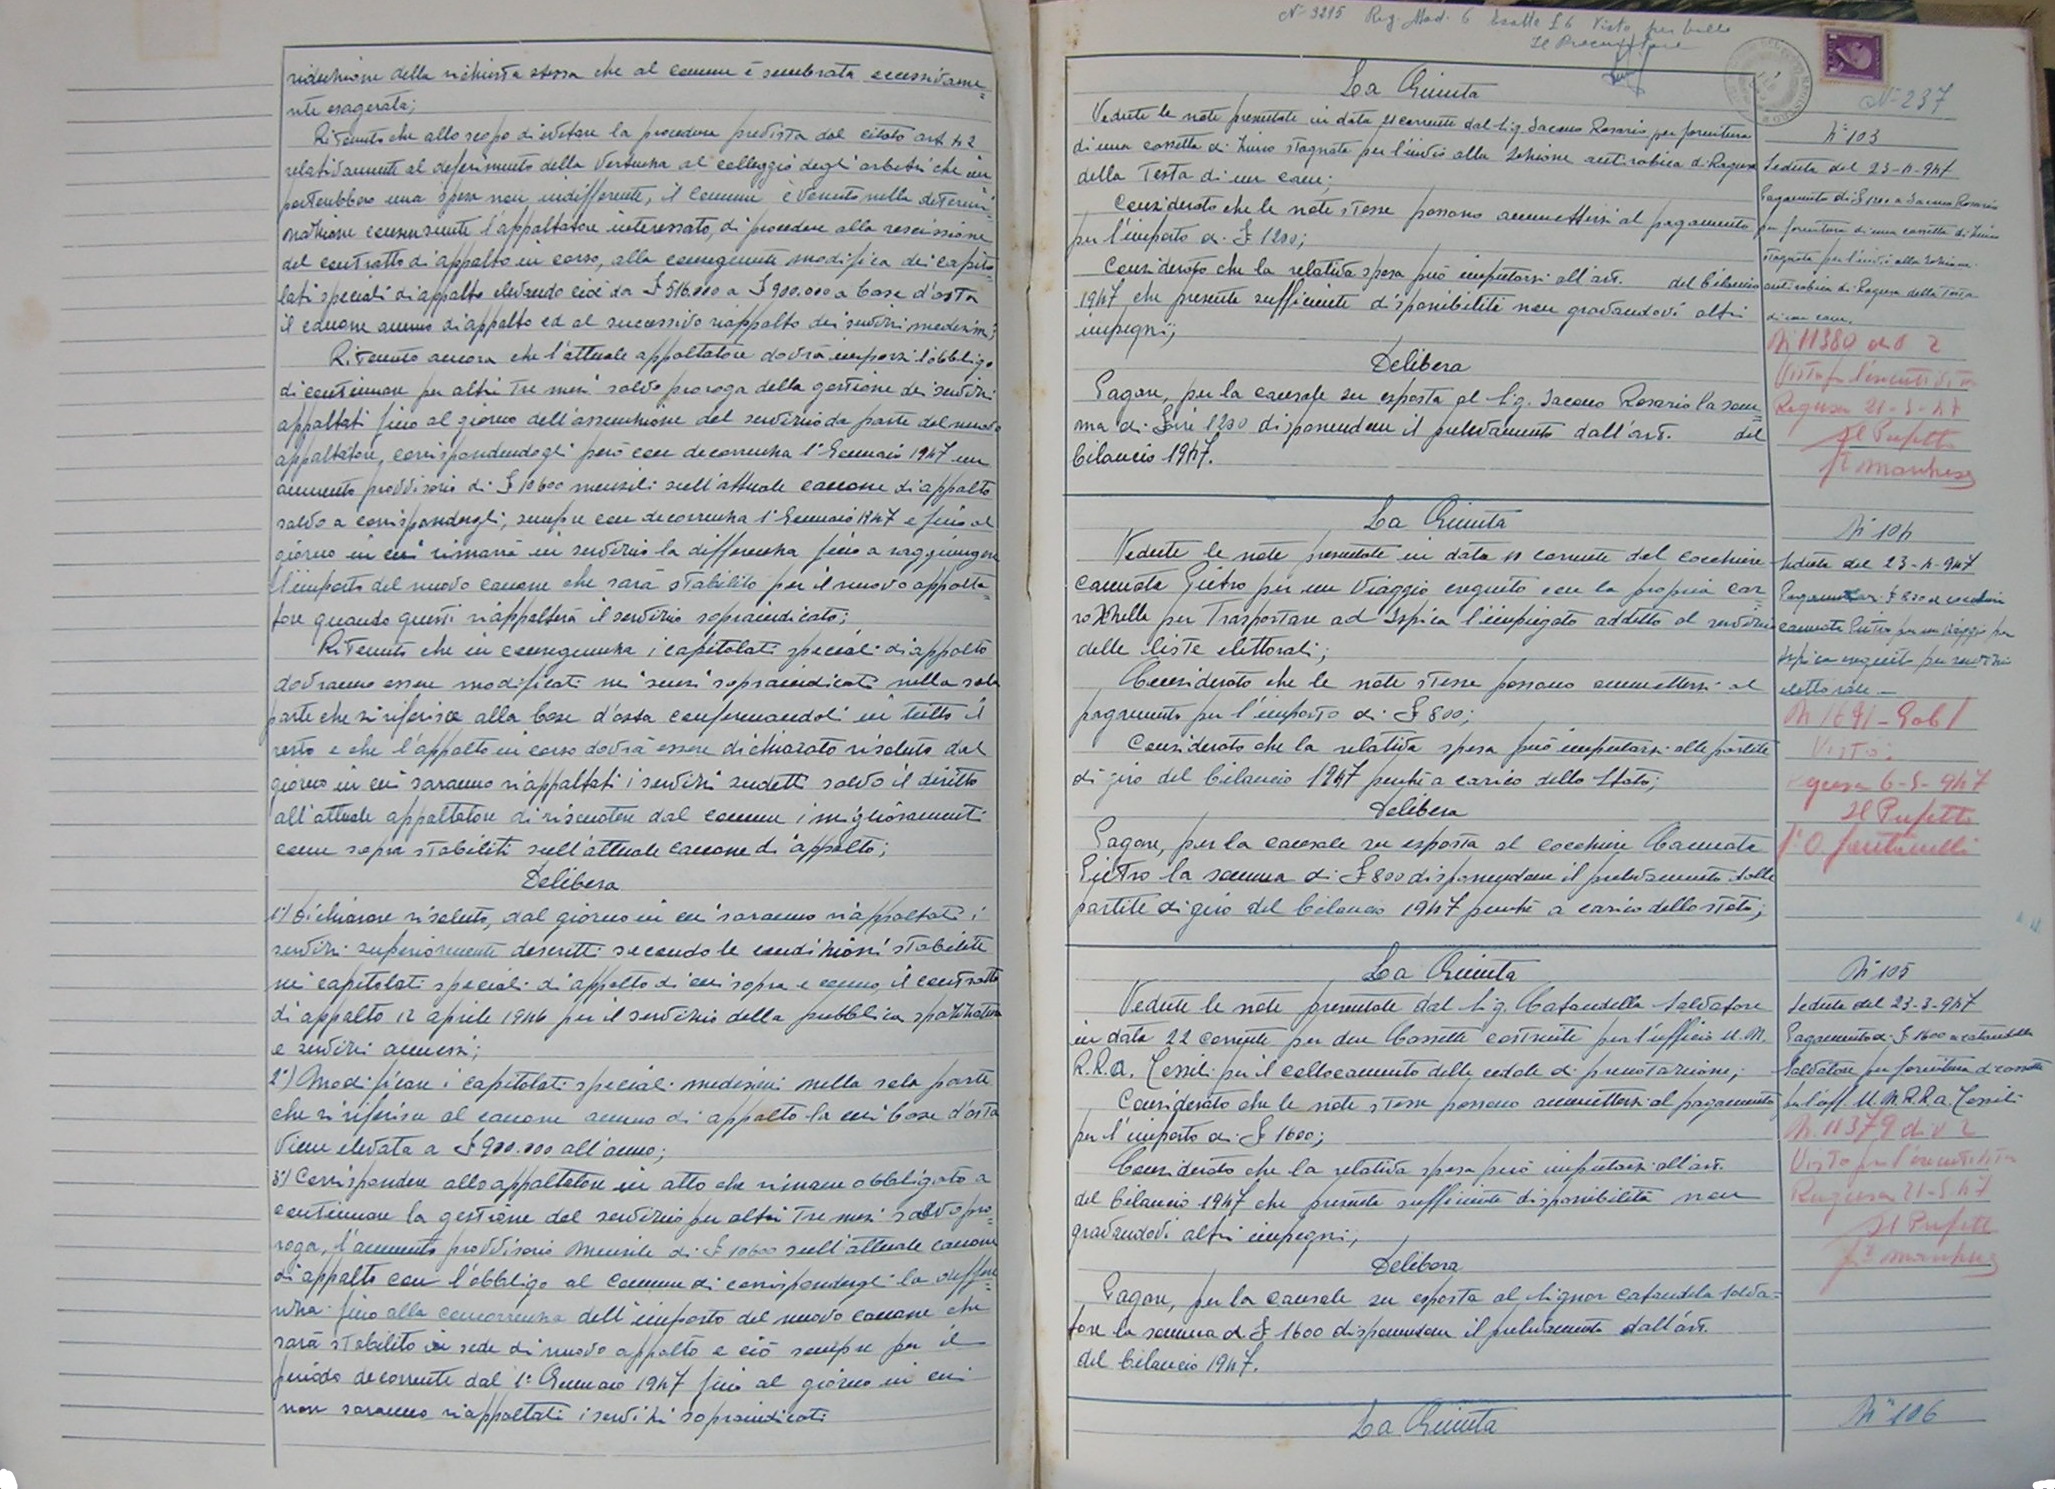 riduzione della richiesta stessa che al comune è sembrata eccessivame=
nte esagerata;
Ritenuto che allo scopo di evitare la procedura prevista dal citato art 42
relativamente al deferimento della vertenza al colleggio degli arbitri che im
porterebbero una spesa non indifferente, il Comune è venuto nella determi=
nazione consenziente l'appaltatore interessato, di procedere alla rescissione
del contratto di appalto in corso, alla conseguente modifica dei capito
lati speciali di appalto elevando cioè da £ 516.000 a £ 900.000 a base d'asta
il canone annuo di appalto ed al successivo riappalto dei servizi medesimi;
Ritenuto ancora che l'attuale appaltatore dovrà imporsi l'obbligo
di continuare per altri tre mesi salvo proroga della gestione dei servizi
appaltati fino al giorno dell'assunzione del servizio da parte del nuovo
appaltatore, corrispondendogli però con decorrenza 1° Gennaio 1947 un
aumento provvisorio di £ 10600 mensili sull'attuale canone di appalto
salvo a corrispondergli, sempre con decorrenza 1° Gennaio 1947 e fino al
giorno in cui rimarrà in servizio la differenza fino a raggiungere
l'importo del nuovo canone che sarà stabilito per il nuovo appalta=
tore quando questi riappalterà il servizio sopraindicato;
Ritenuto che in conseguenza i capitolati speciali di appalto
dovranno essere modificati nei sensi sopraindicati nella sola
parte che si riferisce alla base d'asta confermandoli in tutto il
resto e che l'appalto in corso dovrà essere dichiarato risoluto dal
giorno in cui saranno riappaltati i servizi sudetti salvo il diritto
all'attuale appaltatore di riscuotere dal comune i miglioramenti
come sopra stabiliti sull'attuale canone di appalto;
Delibera
1°) Dichiarare risoluto, dal giorno in cui saranno riappaltati i
servizi superiormente descritti secondo le condizioni stabilite
nei capitolati speciali di appalto di cui sopra e il contratto
di appalto 12 aprile 1946 per il servizio della pubblica spazzatura
e servizi annessi;
2°) Modificare i capitolati speciali medesimi nella sola parte
che si riferisce al canone annuo di appalto la cui base d'asta
viene elevata a £ 900.000 all'anno;
3°) Corrispondere allo appaltatore in atto che rimane obbligato a
continuare la gestione del servizio per altri tre mesi salvo pro=
roga, l'aumento provvisorio mensile di £ 10600 sull'attuale canone
di appalto con l'obbligo al Comune di corrispondergli la differe=
nza fino alla concorrenza dell'importo del nuovo canone che
sarà stabilito in sede di nuovo appalto e ciò sempre per il
periodo decorrente dal 1° Gennaio 1947 fino al giorno in cui
non saranno riappaltati i servizi sopraindicati
N° 3215 Reg. Mod. 6 Esatte £ 6 Visto per bollo
Il Procuratore
N° 237
La Giunta
Vedute le note presentate in data 21 corrente dal Sig. Iacono Rosario per fornitura
di una cassetta di zinco stagnata per l'invio alla Sezione antirabica di Ragusa
della testa di un cane;
Considerato che le note stesse possono ammettersi al pagamento
per l'importo di £ 1200;
Considerato che la relativa spesa può imputarsi all'art. del bilancio
1947 che presente sufficiente disponibilità non gravandovi altri
impegni;
Delibera
Pagare, per la causale su esposta al Sig. Iacono Rosario la som=
ma di Lire 1200 disponendone il prelevamento dall'art. del
bilancio 1947.
N° 103
Seduta del 23-4-947
Pagamento di £ 1200 a Iacono Rosario
per fornitura di una cassetta di zinco
stagnata per l'invio alla Sezione
antirabica di Ragusa della testa
di un cane.
N 11380 div 2
Visto per l'esecutività
Ragusa 21-5-47
Il Prefetto
f° Marchese
La Giunta
Vedute le note presentate in data 11 corrente dal cocchiere
Cannata Pietro per un viaggio eseguito con la propria car=
rozzella per trasportare ad Ispica l'impiegato addetto al servizio
delle liste elettorali;
Considerato che le note stesse possono ammettersi al
pagamento per l'importo di £ 800;
Considerato che la relativa spesa può imputarsi alle partite
di giro del bilancio 1947 perché a carico dello Stato;
Delibera
Pagare, per la causale su esposta al cocchiere Cannata
Pietro la somma di £ 800 disponendone il prelevamento dalle
partite di giro del bilancio 1947 perché a carico dello Stato;
N° 104
Seduta del 23-4-947
Pagamento di £ 800 a cocchiere
Cannata Pietro per un viaggio per
Ispica eseguito per servizio
elettorale -
N 1691 - Gab/
Visto:
Ragusa 6-5-947
Il Prefetto
f° O.
La Giunta
Vedute le note presentate dal Sig. Cataudella Salvatore
in data 22 corrente per due Cassette costruite per l'ufficio U.N.
R.R.A. Tessili per il collocamento delle cedole di prenotazione;
Considerato che le note stesse possono ammettersi al pagamento
per l'importo di £ 1600;
Considerato che la relativa spesa può imputarsi all'art.
del bilancio 1947 che presenta sufficiente disponibilità non
gravandovi altri impegni;
Delibera
Pagare, per la causale su esposta al Signor Cataudella Salva=
tore la somma di £ 1600 disponendone il prelevamento dall'art.
del bilancio 1947.
N° 105
Seduta del 23-3-947
Pagamento di £ 1600 a Cataudella
Salvatore per fornitura di cassette
per l'uff. U.N.R.R.A. Tessili
N. 11379 div 2
Visto per l'esecutività
Ragusa 21-5-47
Il Prefetto
f° Marchese
La Giunta
N° 106